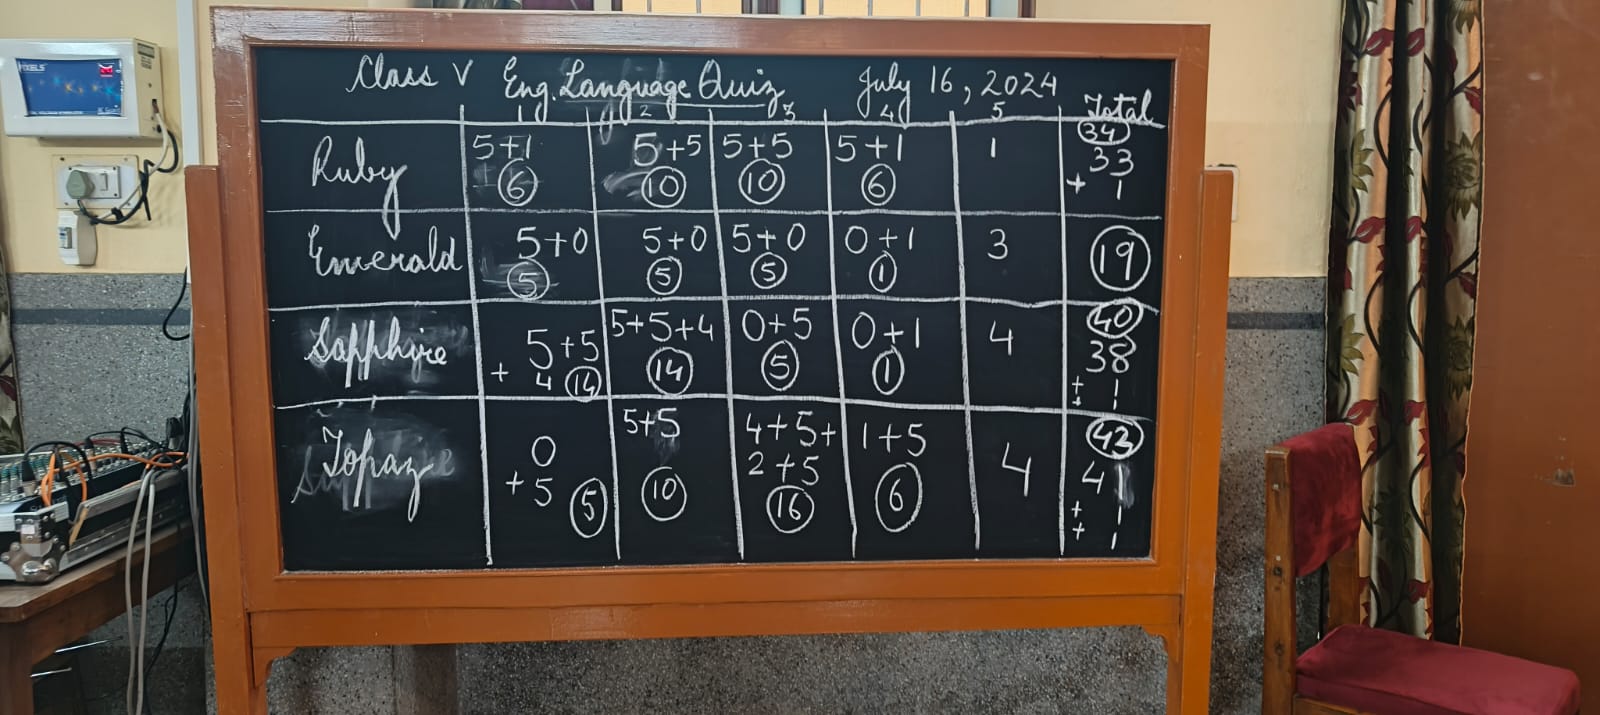 PIXELS
Class V Eng. Language Quiz July 16, 2024
1 2 3 4 5 Total
Ruby 5+1 5+5 5+5 5+1 1 34
6 10 10 6 33
+ 1
Emerald 5+0 5+0 5+0 0+1 3 19
5 5 5 1
Sapphire 5+5 5+5+4 0+5 0+1 4 40
+ 4 14 14 5 1 38
+ 1
+ 1
Topaz 0 5+5 4+5+ 1+5 4 43
+5 5 10 2+5 6 41
16 + 1
+ 1